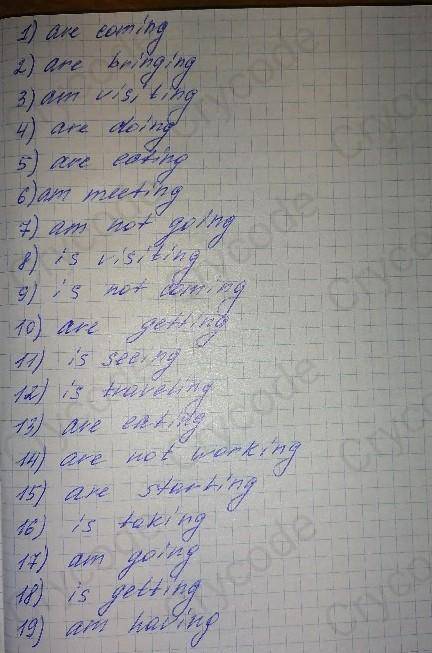 1) are coming
2) are bringing
3) am visiting
4) are doing
5) are eating
6) am meeting
7) am not going
8) is visiting
9) is not coming
10) are getting
11) is seeing
12) is traveling
13) are eating
14) are not working
15) are starting
16) is taking
17) am going
18) is getting
19) am having
Crycode